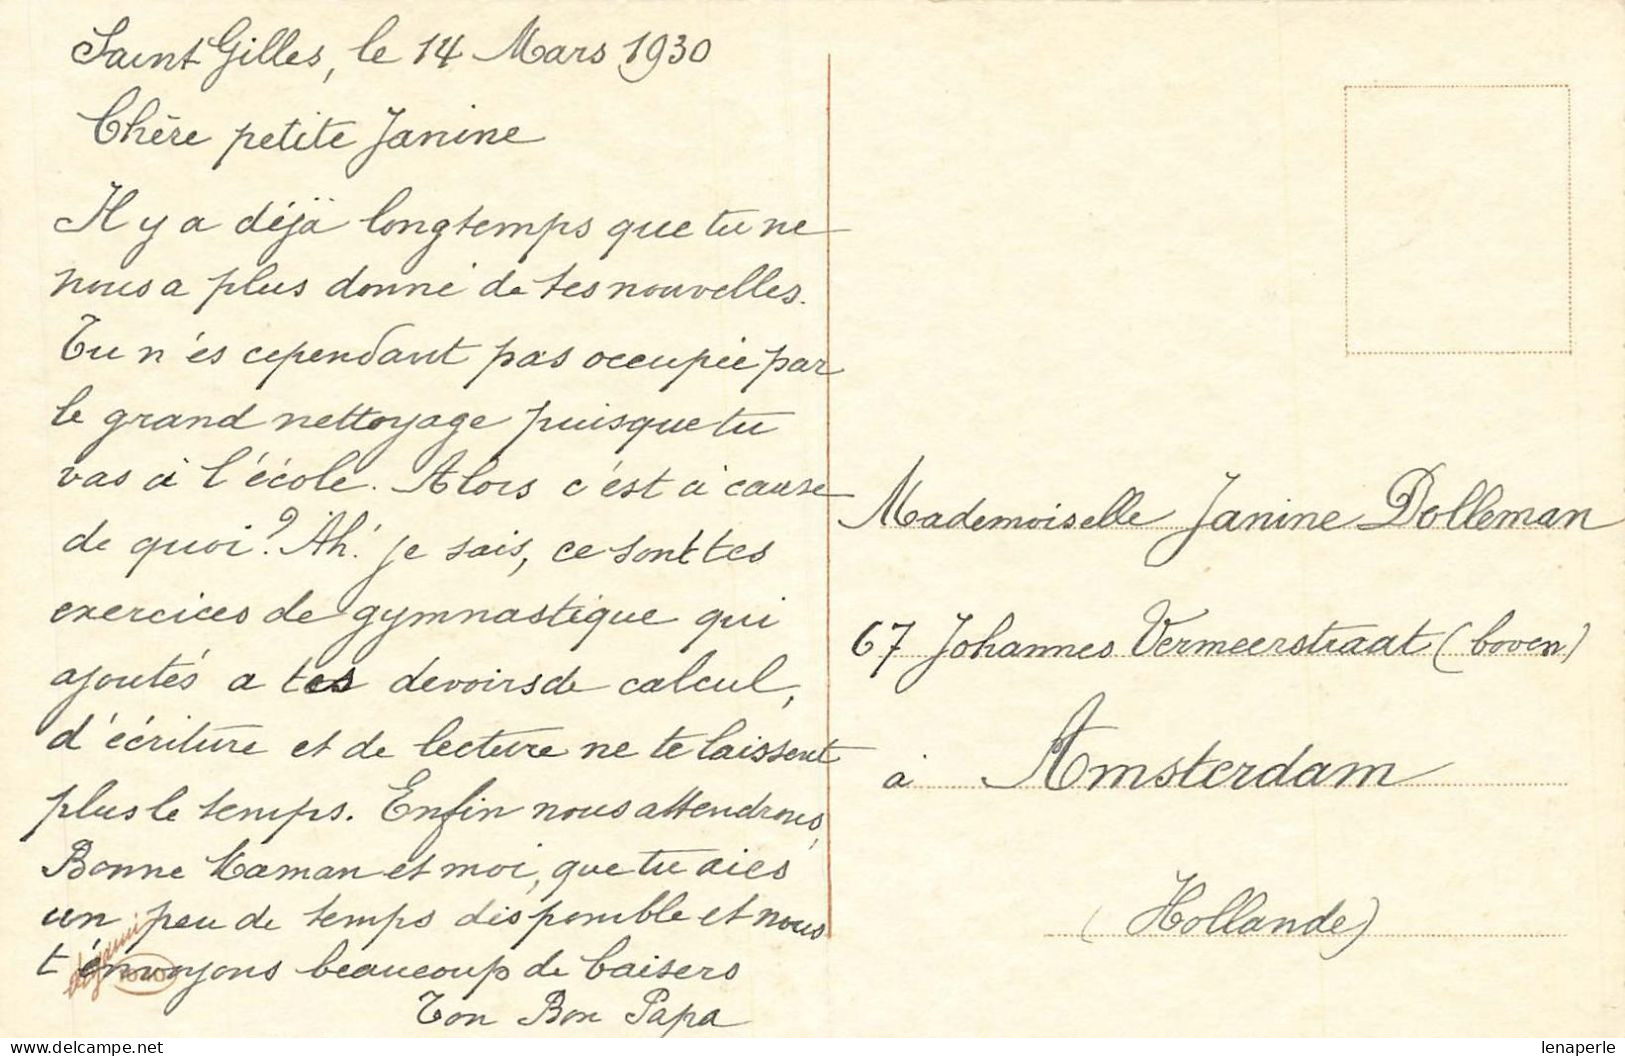 Saint Gilles, le 14 Mars 1930
Chère petite Janine
Il y a déjà longtemps que tu ne
nous a plus donné de tes nouvelles.
Tu n'es cependant pas occupée par
le grand nettoyage puisque tu
vas à l'école. Alors c'est à cause
de quoi? Ah! je sais, ce sont tes
exercices de gymnastique qui
ajoutés a tes devoirs de calcul,
d'écriture et de lecture ne te laissent
plus le temps. Enfin nous attendrons,
Bonne Maman et moi, que tu aies
un peu de temps disponible et nous
t'envoyons beaucoup de baisers
Ton Bon Papa
Mademoiselle Janine Dolleman
67 Johannes Vermeerstraat (boven)
à Amsterdam
(Hollande)
Visit DELCAMPE.net for more info
lenaperle